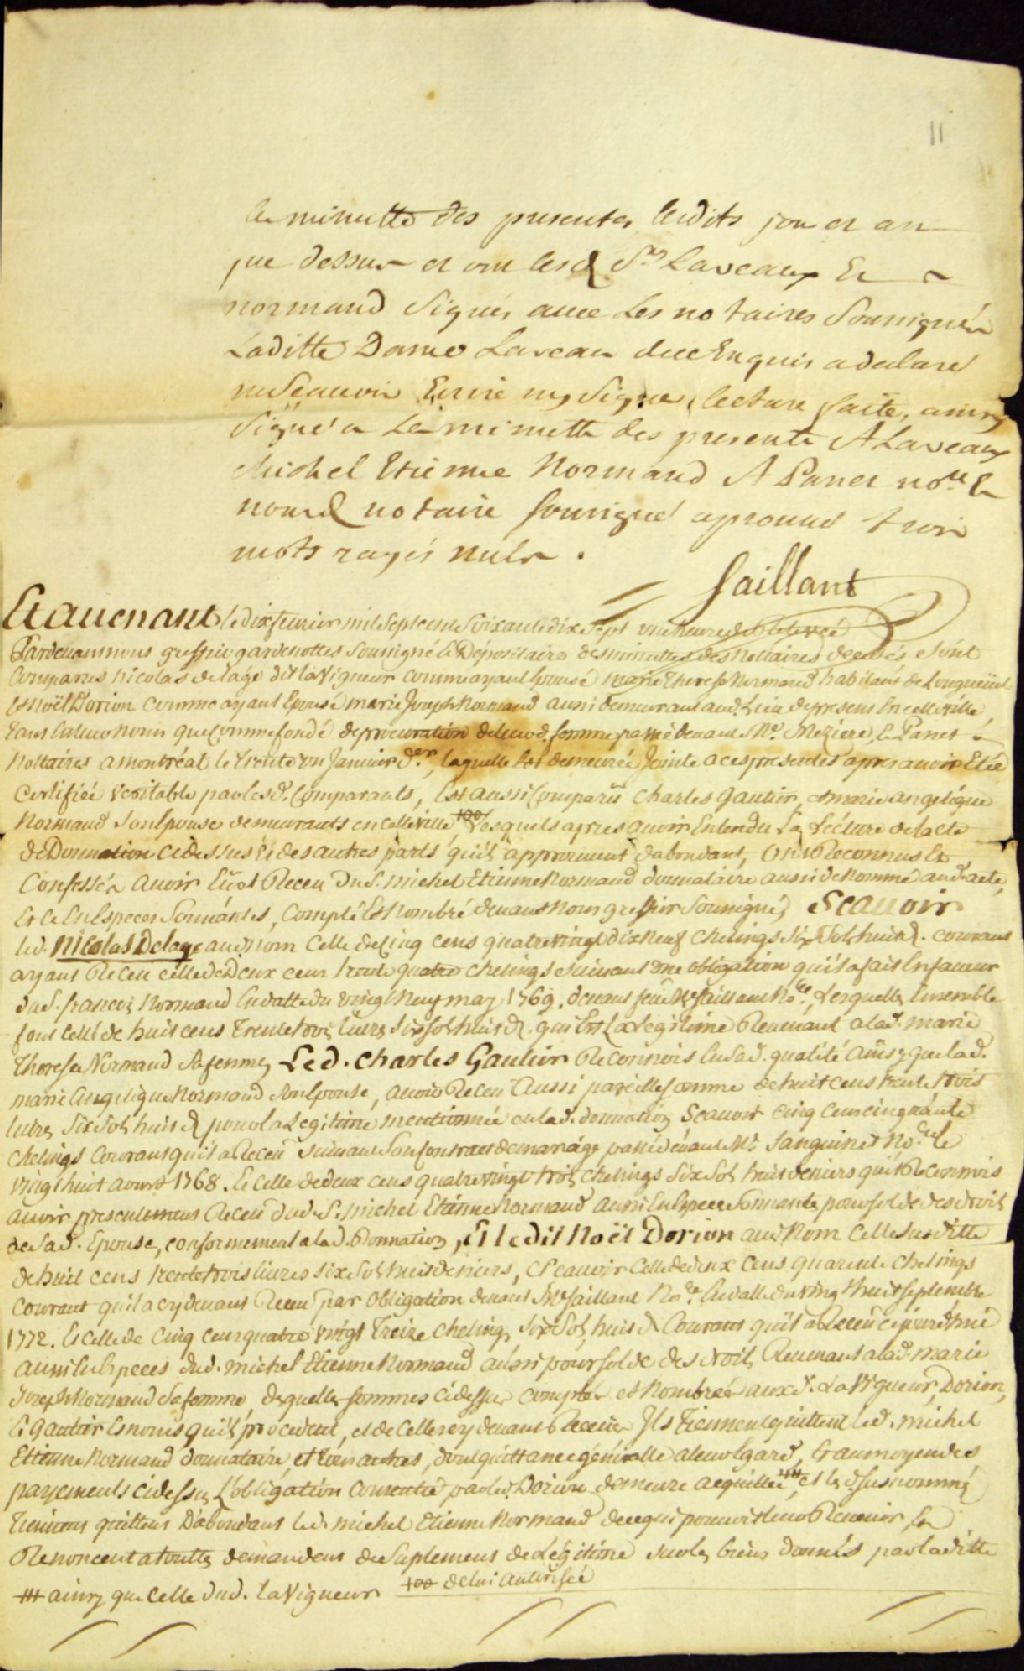 11
la minutte des presentes lesdits jour et an
que dessus et ont lesd Srs Laveaux Et
normand Signés avec Les notaires Soussignés
Laditte Dame Laveau duement Enquis a declaré
ne Scavoir Ecrire ny Signer, lecture faite, ainsy
Signé a La minutte des presentes A Laveaux
Michel Etienne Normand A Panet nore Et
nous notaire soussigné aprouvé trois
mots rayés nuls.
Saillant
Et avenant le dix fevrier mil Sept cent Soixante dix Sept une heure de relevée
Pardevant nous greffier gardenottes Soussigné Et Depositaire des minuttes des Nottaires decedés Sont
Comparus Nicolas delage dit la Vigueur comme ayant Epousé marie Therese Normand habitant de Longueüil
Et Noël Dorion comme ayant Epousé marie Joseph Normand aussi demeurant aud. Lieu de present En cette ville,
tant En leur nom que comme fondé de procuration de leurd. femme passé devant Me Meziere & Panet
Nottaires a montréal le trente un Janvier der, laquelle Est demeurée Jointe aces presentes apres avoir Eté
Certifiée veritable par lesd. Comparants, Est aussi Comparü Charles Gautier, et marie angelique
Normand Son Epouse demeurants en cette ville +oo Lesquels apres avoir Entendu La Lecture de lacte
de Donnation cidessus Et des autres parts qu'ils approuvent dabondant, Ont Reconnus Et
Confessés avoir Eu et Receu du S. michel Etienne Normand donnataire aussi denommé aud. acte,
Et ce En Especes Sonnantes, Compté Et Nombré devant Nous greffier Soussigné, Scavoir
led. Nicolas Delage aud. nom Celle de Cinq cens quatrevingt dixneuf chelings Six Sols huit d. courant
ayant Receu celle de Deux cens trente quatre chelings Suivant une obligation qu'il a fait En faveur
du S. francois Normand En datte du vingt Neuf may 1769. devant feu Me Saillant Nore, Lesquelles Ensemble
font celle de huit cens Trente trois livres Six Sols huit D. qui Est La Legitime Revenant a lad. marie
Therese Normand Sa femme, Led. Charles Gautier Reconnois En Sad. qualité ainsy que lad.
marie Angelique Normand Son Epouse, avoir Receu aussi pareille Somme de huit cens trente trois
livres Six Sols huit D pour la Legitime mentionnée en lad. donnation Scavoir cinq cens cinquante
chelings Courant qu'il a Receu Suivant Son Contract de mariage passé devant Me Sanguinet Nore le
vingt huit avril 1768. Et Celle de deux cens quatrevingt trois chelings Six Sols huit deniers qu'il Reconnois
avoir presentement Receu dud. S. michel Etienne Normand aussi En Especes Sonnante pour Solde des droits
de Sad. Epouse, conformement a lad. Donnation, Et le dit Noël Dorion aud. Nom Celle Susditte
de huit cens trente trois livres six Sols huit deniers, Scavoir Celle de deux Cens quarente chelings
Courant qu'il a cy devant Receu par Obligation devant Me Saillant Nore En datte du vingt huit Septembre
1772. Et celle de Cinq cens quatre vingt Treize cheling, Six Sols huit D Courant qu'il a Receu cejourdhui
aussi En Especes dud. michel Etienne Normand aussi pour Solde des droits Revenant a lad. marie
Joseph Normand Sa femme desquelles Sommes cidessus Comptés et Nombrés auxd. La Vigueur, Dorion,
Et Gautier Es noms qu'ils procedent, et de Celles cy devant Receües Ils Tiennent quittent led. michel
Etienne Normand donnataire, et tous autres, dont quittance générale a leur Egard, Et au moyen des
payements cidessus L'obligation Consentie par led. Dorion demeure acquittée ‡‡‡, et les Susnommés
Tiennent quittent D'abondant led. michel Etienne Normand de ce qui pouvoit leur Revenir, Et
Renoncent a toutes demandes de Suplement de Légitime Sur les biens donnés par laditte
‡‡‡ ainsy que celle dud. la Vigueur +oo de lui autorisée